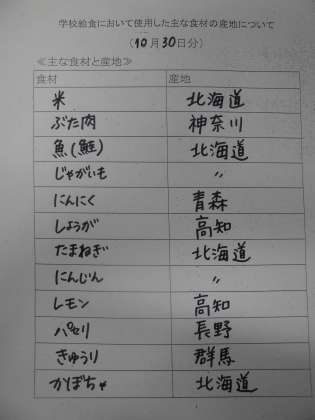 学校給食において使用した主な食材の産地について
(10月30日分)
≪主な食材と産地≫
食材 産地
米 北海道
ぶた肉 神奈川
魚(鮭) 北海道
じゃがいも 〃
にんにく 青森
しょうが 高知
たまねぎ 北海道
にんじん 〃
レモン 高知
パセリ 長野
きゅうり 群馬
かぼちゃ 北海道